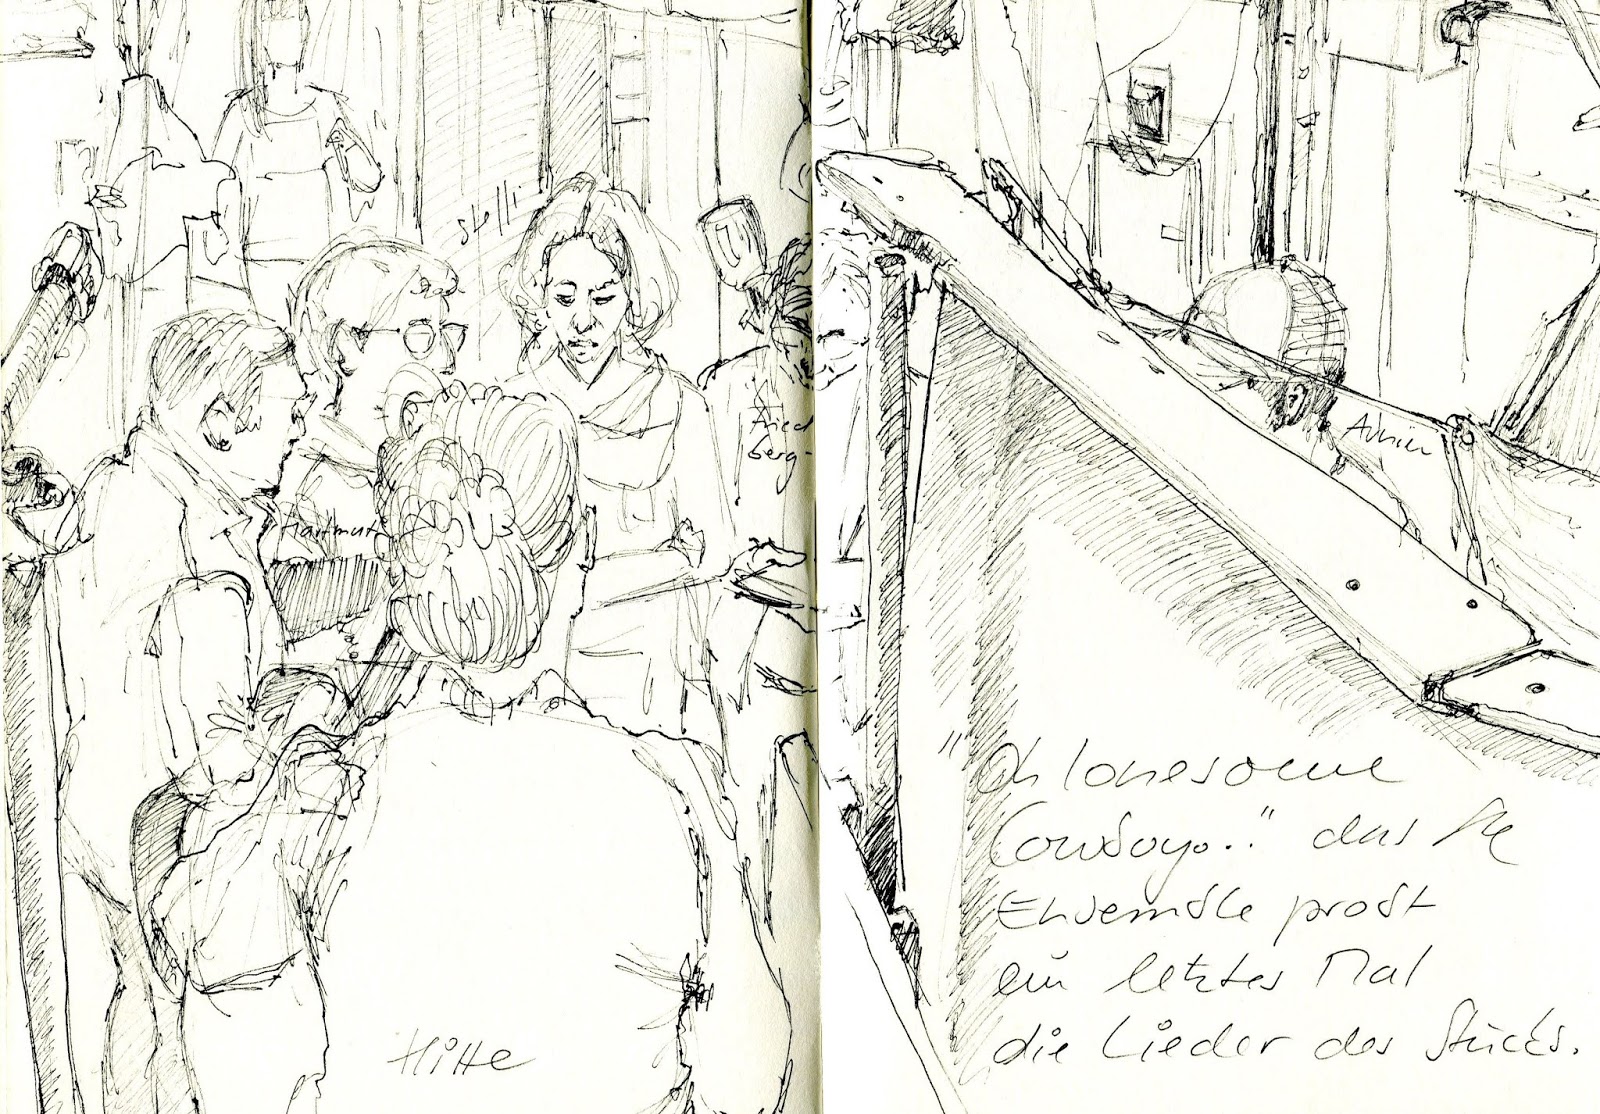 Fried
berg-
Hartmut
Armin
"Oh lonesome
Cowboy.." das
Ensemble probt
ein letztes Mal
die Lieder des Stücks.